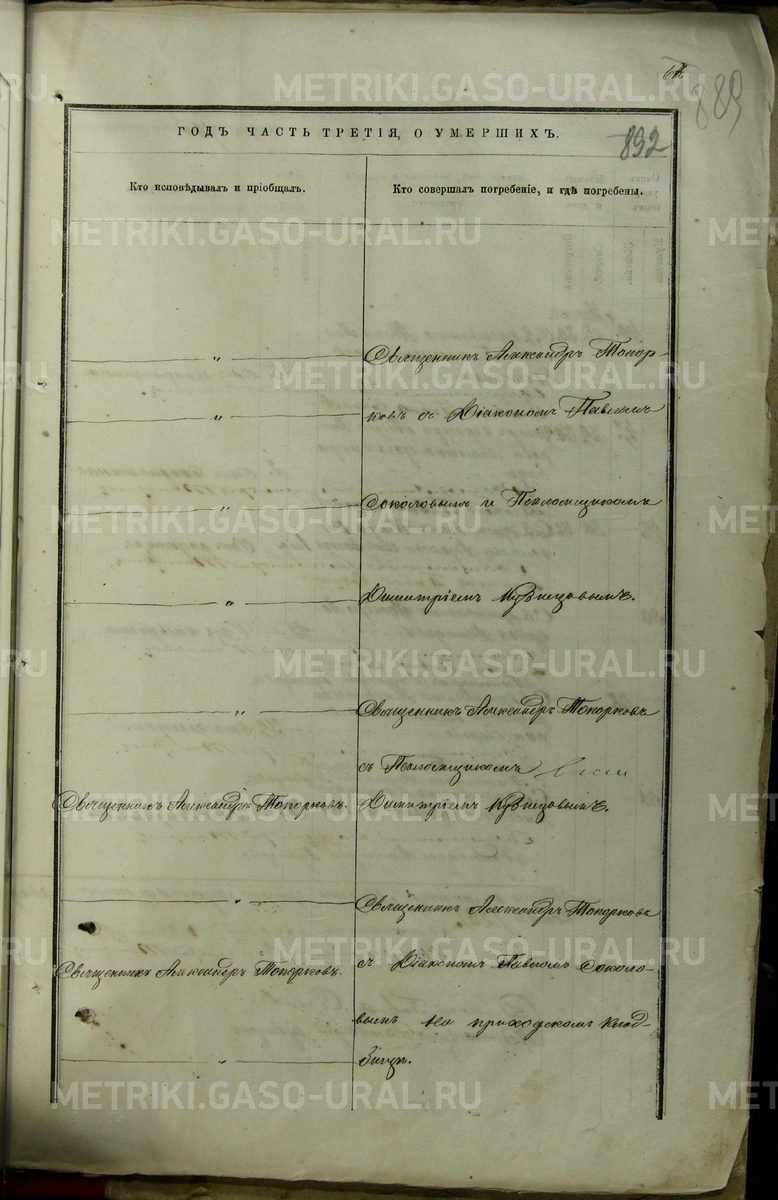 64.
889
ГОДЪ ЧАСТЬ ТРЕТІЯ, О УМЕРШИХЪ.
892
Кто исповѣдывалъ и пріобщалъ.
Кто совершалъ погребеніе, и гдѣ погребены.
„ Священникъ Александръ Топор-
„ ковъ съ Діакономъ Павломъ
„ Соколовымъ и Псаломщикомъ
„ Димитріемъ Кузнецовымъ.
„ Священникъ Александръ Топорковъ
съ Псаломщикомъ
Священникъ Александръ Топорковъ. Димитріемъ Кузнецовымъ.
„ Священникъ Александръ Топорковъ
Священникъ Александръ Топорковъ. съ Діакономъ Павломъ Соколо-
вымъ на приходскомъ клад-
„ бищѣ.
METRIKI.GASO-URAL.RU